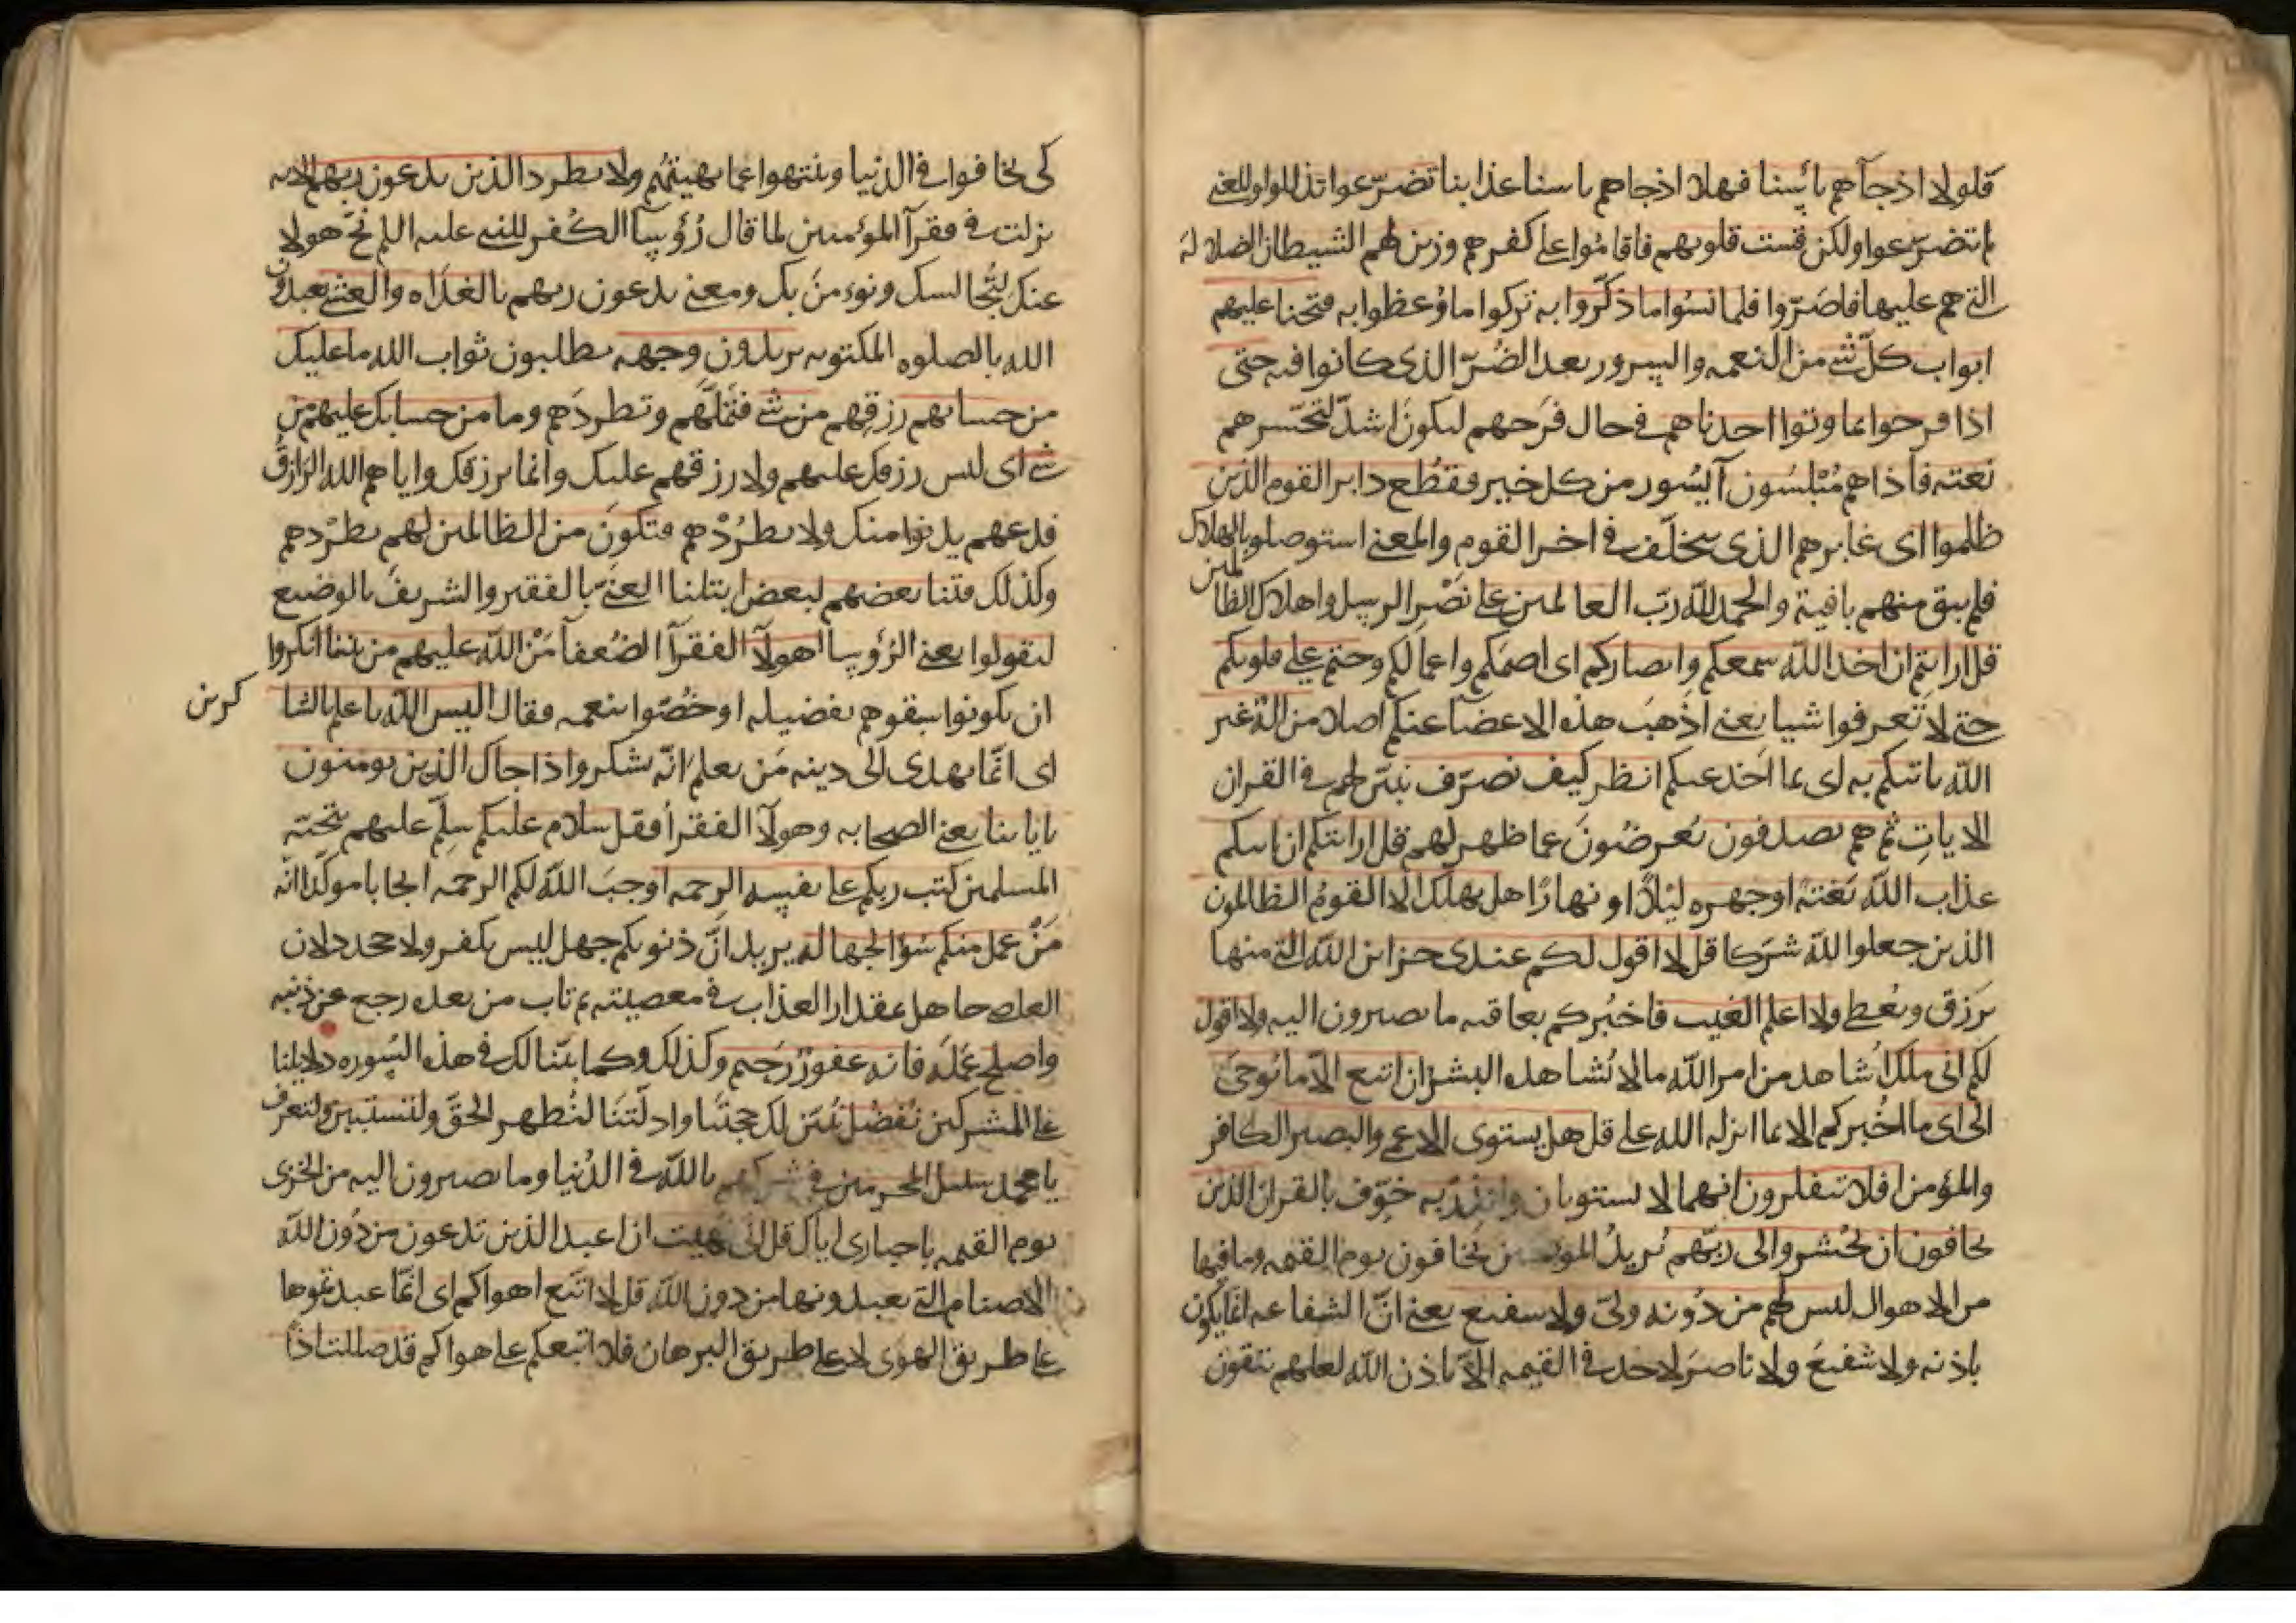 فلولا اذ جآهم بائسنا فهلا اذ جاهم باسنا عذابنا تضرّعوا تذللوا والمعنى
لم تتضرّعوا ولكن قست قلوبهم فاقامُوا على كفرهم وزين لهم الشيطان الضلاله
التى هم عليها فاصَرّوا فلما نسُوا ما ذكّروا به تركوا ما وُعظوا به فتحنا عليهم
ابواب كلّ شى من النعمه والسرور بعد الضُرّ الذى كانوا فيه حتى
اذا فرحوا بما اوتوا اخدناهم فى حال فرَحهم ليكونَ اشدّ لتحسّرهم
بغته فاذاهم مُبْلسُون آيسُون من كل خير فقطُع دابر القوم الذين
ظلموا اى غابرهم الذى يتخلّف فى اخر القوم والمعنى استوصلوا بالهلاك
فلم يبق منهم باقية والحمد لله ربّ العالمين على نَصْرِ الرسل واهلاك الظالمين
قل ارايتم ان اخد اللّه سمعكم وابصاركم اى اصمّكم واعمالكم وختم على قلوبكم
حتى لا تعرفوا شيا يعنى اذهبَ هذه الاعضآ عنكم اصلا من الهٌ غير
اللّه ياتيكم به اى بما اخد عنكم انظر كيف نصرّف نبيّن لهم فى القران
الايات ثم هم يصدفون يُعرضُونَ عما ظهر لهم قل ارايتكم ان اتيكم
عذاب اللّه بَغتهً اوجهره ليلاً او نهارًا هل يهلك الا القومُ الظالمون
الذين جعلوا للّه شرَكا قل لا اقول لكم عندى خزاين اللّه التى منها
يَرزق ويُعطى ولا اعلم الغيب فاخبُركم بعاقبه ما تصيرون اليه ولا اقول
لكم انى ملك اُشاهد من امر اللّه ما لا يُشاهده البشر ان اتبع الّا ما يُوحىَ
الى اى ما اُخبركم الا بما انزله الله على قل هل يستوى الاعمى والبصير الكافر
والمؤمن افلا تتفكرون انهما لا يستويان وانذر به خوّف بالقران الذين
يخافون ان يُحشروا الى ربّهم يُريدُ المومنين يخافون يوم القيمه وما فيها
من الاهوال ليس لهم من دُونه ولىّ ولا شفيع يعنى انّ الشفاعه انما يكون
باذنه ولا شفيعَ ولا ناصرَ لاحد فى القيمه الّا باذن اللّه لعلهم يتقون
كى يخافوا فى الدنيا وينتهوا عما نهيتهُم ولا تطرد الذين يدعون ربهم الايه
نزلت فى فقرآ المؤمنين لما قال رُؤسآ الكُفر للنبى عليه السلم نحّ هولا
عنك لنُجالسك ونومنَ بك ومعنى يدعون ربهم بالغدَاه والعشى يعبدون
الله بالصلوه المكتوبه يريدون وجهه يطلبون ثواب الله ما عليك
من حسابهم رزقِهم من شى فتمَلَّهم وتطردَهم وما من حسابك عليهم من
شى اى ليس رزقك عليهم ولا رزقهم عليك وانما يرزقك واياهم الله الرازقُ
فدعهم يدنوا منك ولا تطرُدْهم فتكونَ من الظالمين لهم بطَرْدهم
وكذلك فتنا بعضهم لبعض ابتلنا الغنَى بالفقير والشريفَ بالوضيع
ليقولوا يعنى الرؤسآ اهولآ الفقرآ الضُعفآ مَنّ اللّه عليهم من بيننا انكروا
ان يكونوا سبقوهم بفضيله او خُصّوا بنعمه فقال اليس اللّه باعلم بالشا
كرين
اى انّما يهدى الى دينه مَن يعلم انّه يشكر واذا جاك الذين يومنون
باياتنا يعنى الصحابه وهولآ الفقرآ فقل سلام عليكم سلِّم عليهم بتحيّه
المسلمين كتب ربكم على نفسه الرحمه اوجبَ اللّه لكم الرحمه ايجابا موكّدا انّه
مَنْ عمل منكم سُوْا بجهاله يريد انّ ذنوبكم جهل ليس بكفر ولا جحد لان
العاصى جاهل بمقدار العذاب فى معصيته ثم تاب من بعده رجع عن ذنبه
واصلح عَملَه فانه غفورٌ رَحيم وكذلك وكما بيّنا لك فى هذه السُوره دلايلنا
على المشركين نُفَصّل نُبيّن لك حجتنَا وادلّتنَا لنُظهر الحقّ ولتستبين ولتعرف
يا محمد سبيل المجرمين فى شركهم باللّه فى الدُنيا وما يصيرون اليه من الخزى
يوم القيمه باخبارى اياك قل انى نهيت ان اعبد الذين تدعون من دُون اللّه
الاصنام التى يعبدونها من دون اللّه قل لا اتّبع اهواكم اى انّما عبدتموها
على طريق الهوى لا على طريق البرهان فلا اتبعكم على هواكم قد ضللت اذًا